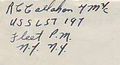 R G Callahan Y M2/c
U S S L S T 197
Fleet P.M.
N.Y. N.Y.